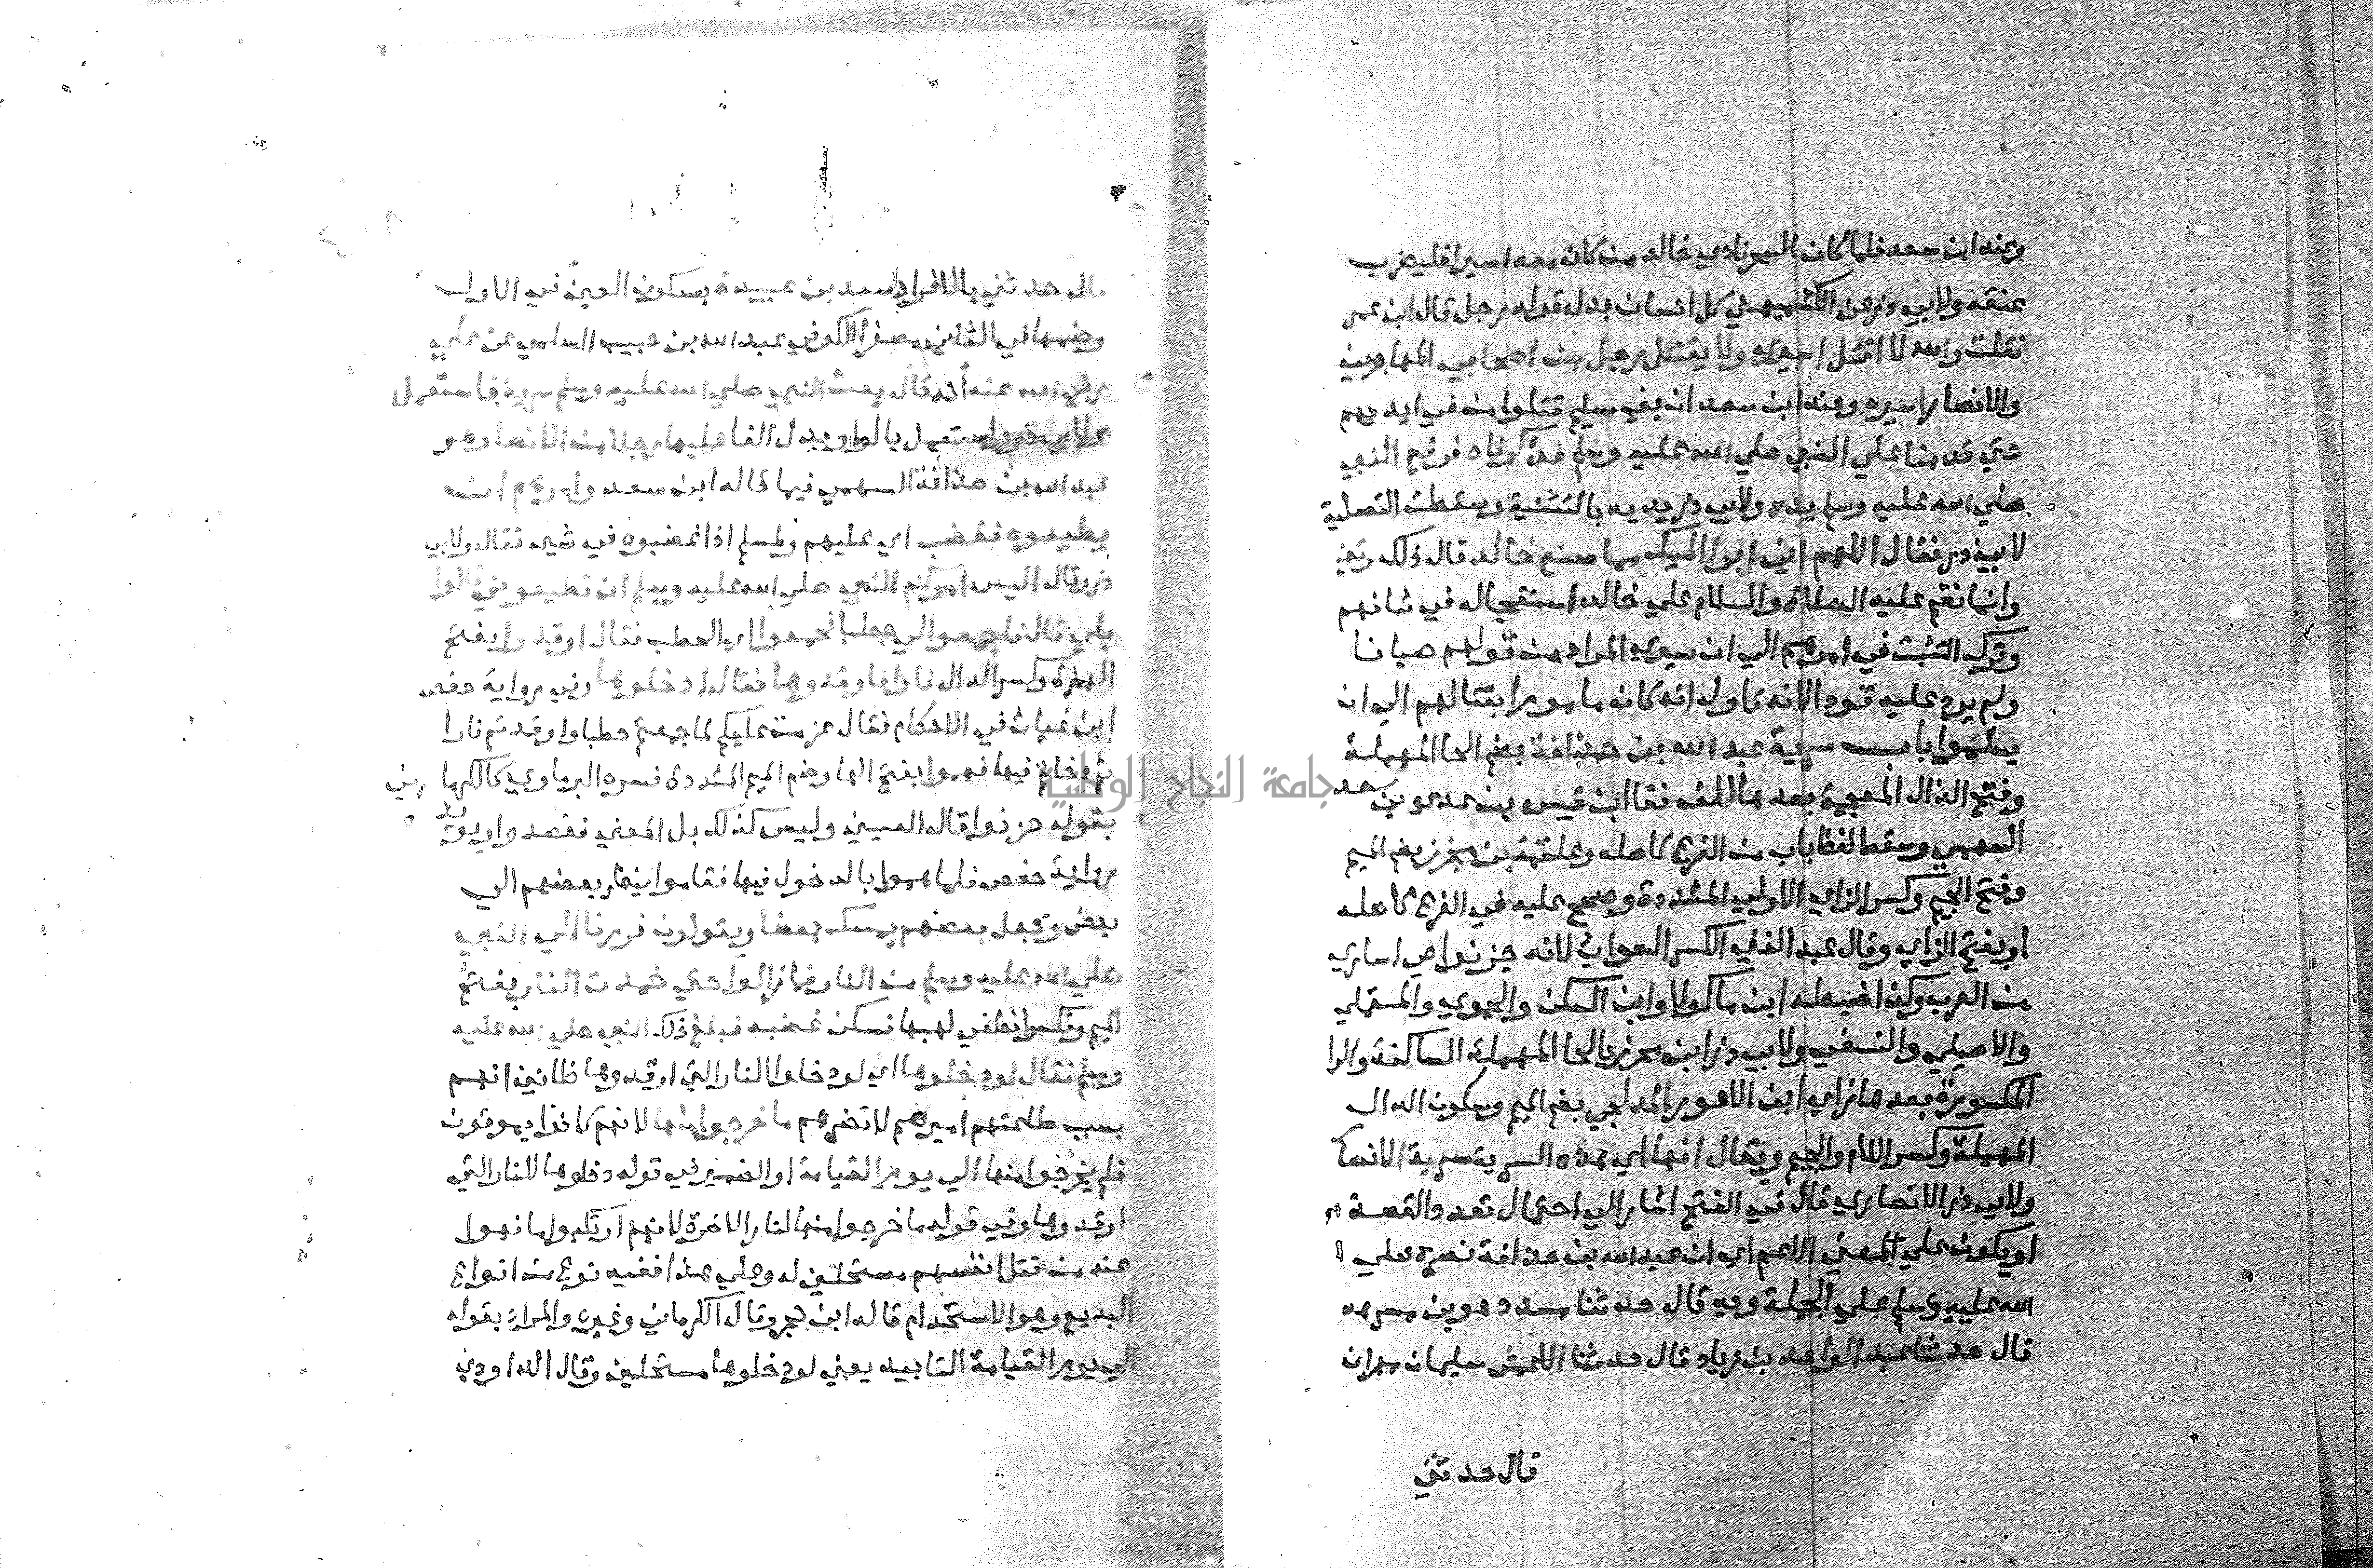 وعند ابن سعد فلما كان السحر نادي خالد من كان معه اسيرا فليضرب
عنقه ولابي ذر عن الكشميهني كل انسان بدل قوله رجل قال ابن عمر
فقلت والله لا اقتل اسيري ولا يقتل رجل من اصحابي المهاجرين
والانصار اسيره وعند ابن سعد ان بني سليم قتلوا من في ايديهم
حتي قدمنا علي النبي صلي الله عليه وسلم فذكرناه فرفع النبي
صلي الله عليه وسلم يده ولابي ذر يديه بالتثنية وسقطت التصلية
لابي ذر فقال اللهم اني ابرا اليك مما صنع خالد قال ذلك مرتين
وانما نقم عليه الصلاة والسلام علي خالد استعجاله في شانهم
وترك التثبت في امرهم الي ان سيري المراد من قولهم صبانا
ولم يرد عليه قود الانه تاول انه كان مامورا بقتالهم الي ان
يسلموا باب سرية عبد الله بن حذافة بضم الحا المهملة
وفتح الذال المعجمة بعدها الف فقا ابن قيس بن عدي بن سعد
السهمي وسقط لفظ باب من الفرع كاصله وعلقمة بن مجزز بضم الميم
وفتح الجيم وكسر الزاي الاولي المشددة وصحح عليه في الفرع كاصله
او بفتح الزاي وقال عبد الغني الكسر الصواب لانه جز نواصي اساري
من العرب وكذا ضبطه ابن ماكولا وابن السكن والحموي والمستملي
والاصيلي والنسفي ولابي ذر ابن محرز بالحا المهملة الساكنة والرا
المكسورة بعدها زاي ابن الاعور المدلجي بضم الميم وسكون الدال
المهملة وكسر اللام والجيم ويقال انها اي هذه السرية سرية الانصا
ولابي ذر الانصاري قال في الفتح اشار الي احتمال تعدد القصة
او يكون علي المعني الاعم اي ان عبد الله بن حذافة نصره صلي
الله عليه وسلم علي الجملة وبه قال حدثنا مسدد هو بن مسرهد
قال حدثنا عبد الواحد بن زياد قال حدثنا الاعمش سليمان مهران
قال حدثني
قال حدثني بالافراد سعد بن عبيدة بسكون العين في الاول
وضمها في الثاني مصغرا الكوفي عبد الله بن حبيب السلمي عن علي
رضي الله عنه انه قال بعث النبي صلي الله عليه وسلم سرية فاستعمل
ولابي ذر واستعمل بالواو بدل الفا عليها رجلا من الانصار هو
عبد الله بن حذافة السهمي فيما قاله ابن سعد وامرهم ان
يطيعوه فغضب اي عليهم ولمسلم اذ اغضبوه في شي فقال ولابي
ذر وقال اليس امركم النبي صلي الله عليه وسلم ان تطيعوني قالوا
بلي قال فاجمعوا لي حطبا فجمعوا اي الحطب فقال اوقدوا بفتح
الهمزة وكسر الدال نارا فاوقدوها فقال ادخلوها وفي رواية حفص
ابن غياث في الاحكام فقال عزمت عليكم لما جمعتم حطبا واوقدتم نارا
ثم دخلتم فيها فهموا بفتح الها وضم الميم المشددة فسره البرماوي كالكرما ني
بقوله حزنوا قاله العيني وليس كذلك بل المعني فقصدوا ويويد
رواية حفص فلما هموا بالدخول فيها فقاموا ينظر بعضهم الي
بعض وجعل بعضهم يمسك بعضا ويقولون فررنا الي النبي
صلي الله عليه وسلم من النار فما زالوا حتي خمدت النار بفتح
الميم وتكسر انطفي لهبها فسكن غضبه فبلغ ذلك النبي صلي الله عليه
وسلم فقال لو دخلوها اي لو دخلوا النار التي اوقدوها ظانين انهم
بسبب طاعتهم اميرهم لا تضرهم ما خرجوا منها لانهم كانوا يموتون
فلم يخرجوا منها الي يوم القيامة او الضمير في قوله دخلوها للنار التي
اوقدوها وفي قوله ما خرجوا منها لنار الاخرة لانهم ارتكبوا ما نهوا
عنه من قتل انفسهم مستحلين له وعلي هذا ففيه نوع من انواع
البديع وهو الاستخدام قاله ابن حجر وقال الكرماني وغيره والمراد بقوله
الي يوم القيامة التابيد يعني لو دخلوها مستحلين وقال الداودي
جامعة النجاح الوطنية